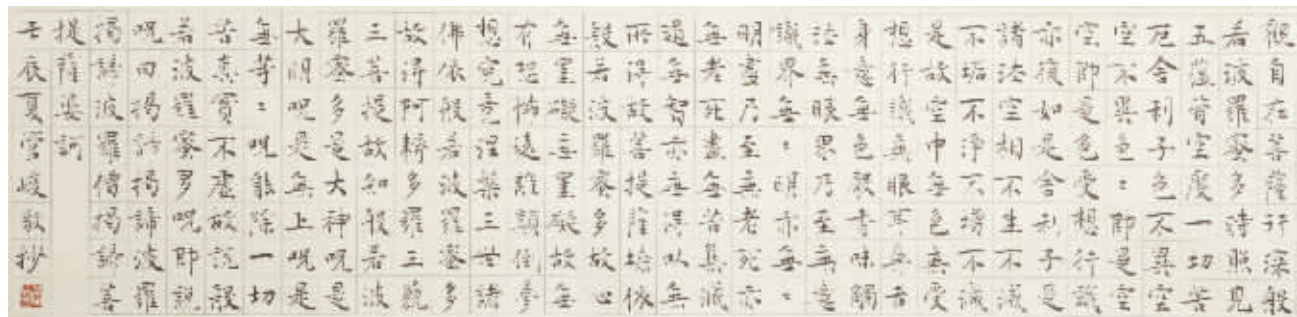 觀自在菩薩行深般
若波羅蜜多時照見
五蘊皆空度一切苦
厄舍利子色不異空
空不異色〻即是空
空即是色受想行識
亦復如是舍利子是
諸法空相不生不滅
不垢不淨不增不減
是故空中無色無受
想行識無眼耳鼻舌
身意無色聲香味觸
法無眼界乃至無意
識界無〻明亦無〻
明盡乃至無老死亦
無老死盡無苦集滅
道無智亦無得以無
所得故菩提薩埵依
般若波羅蜜多故心
無罣礙無罣礙故無
有恐怖遠離顛倒夢
想究竟涅槃三世諸
佛依般若波羅蜜多
故得阿耨多羅三藐
三菩提故知般若波
羅蜜多是大神呪是
大明呪是無上呪是
無等〻呪能除一切
苦真實不虛故說般
若波羅蜜多呪即說
呪曰揭諦揭諦波羅
揭諦波羅僧揭諦菩
提薩婆訶
壬辰夏雲峻敬抄